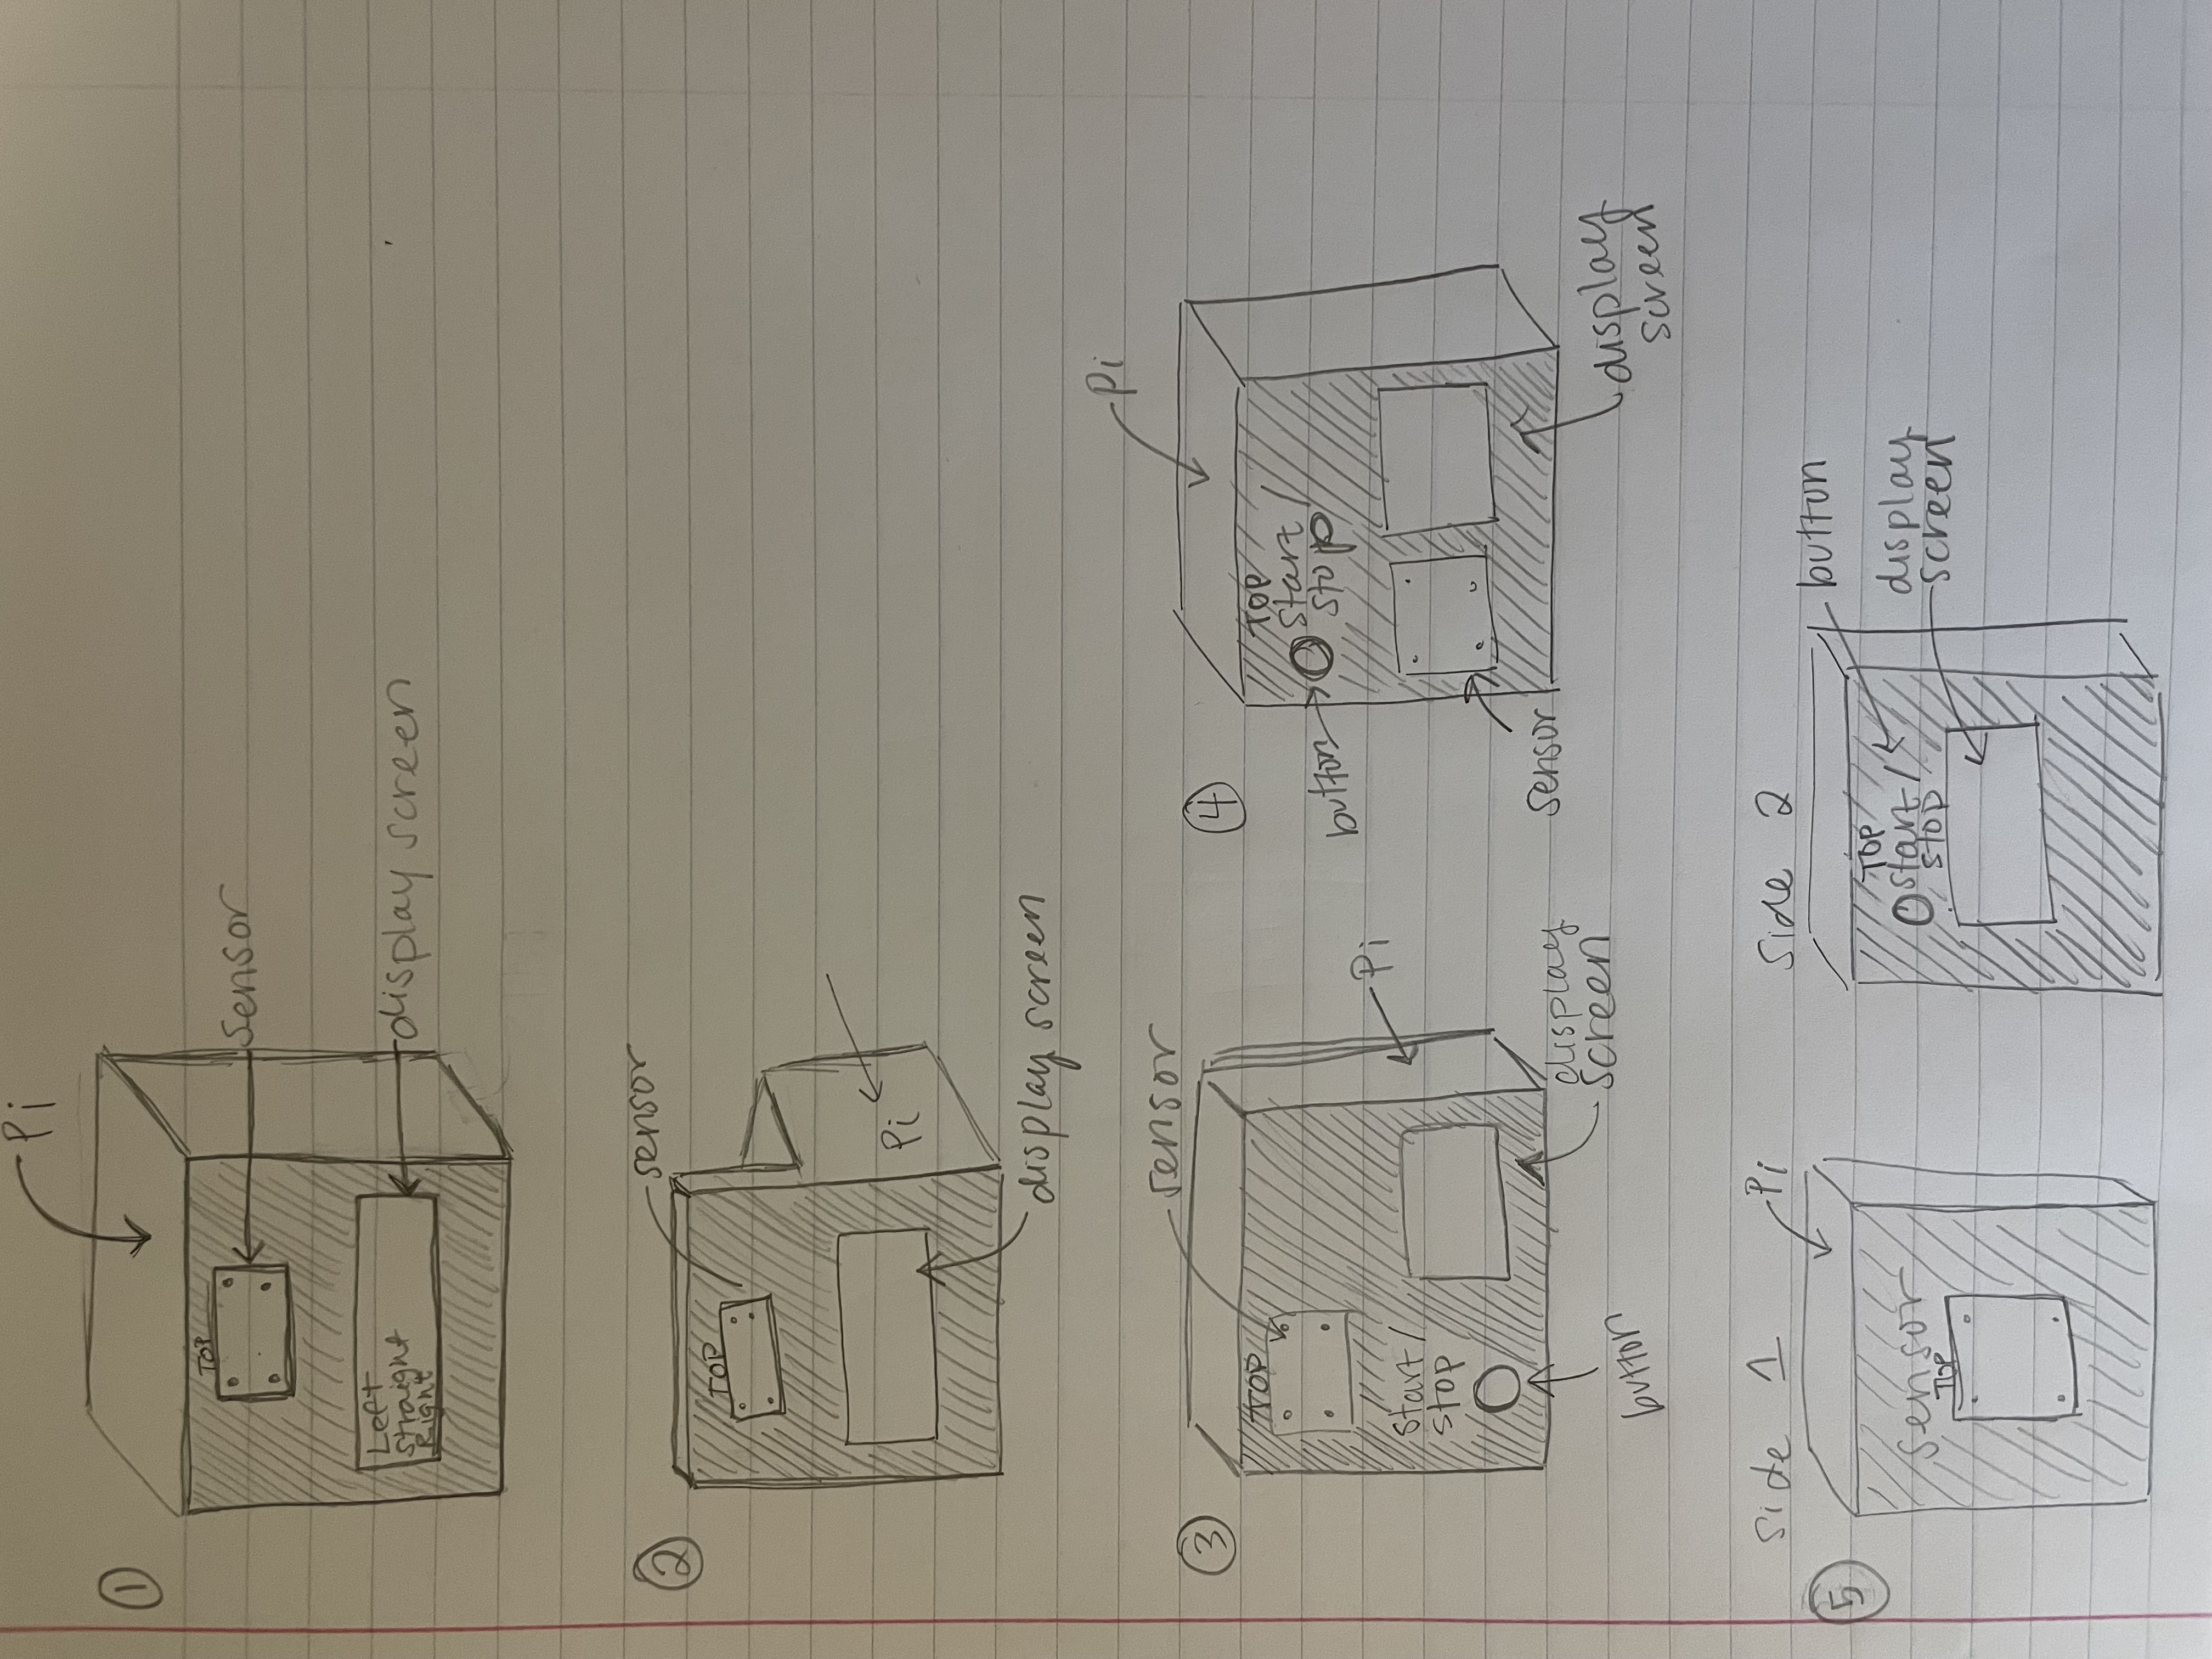 Pi
1
TOP
sensor
Left
Straight
Right
display screen
2
sensor
TOP
Pi
display screen
3
sensor
TOP
Pi
start/
stop
display
screen
button
4
Pi
TOP
start/
stop
button
sensor
display
screen
5
Side 1
Pi
sensor
TOP
Side 2
button
TOP
start/
stop
display
screen